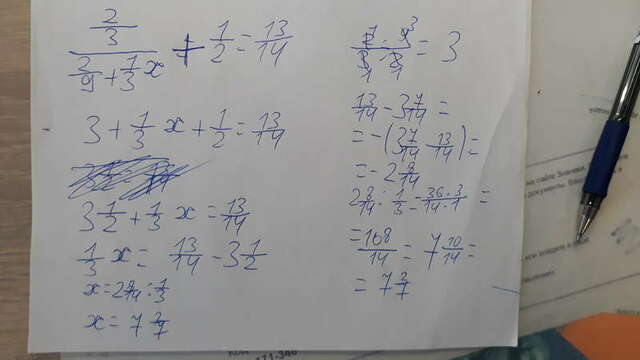 (2/3)/(2/9 + 1/3 x) + 1/2 = 13/14
3 + 1/3 x + 1/2 = 13/14
3 1/2 + 1/3 x = 13/14
1/3 x = 13/14 - 3 1/2
x = 2 8/14 : 1/3
x = 7 2/7
(2 · 9)/(3 · 2) = 3
1 3
1 1
13/14 - 3 7/14 =
= -(3 7/14 - 13/14) =
= -2 8/14
2 8/14 : 1/3 = (36 · 3)/(14 · 1) =
= 108/14 = 7 10/14 =
= 7 2/7
на сайте Знаника.